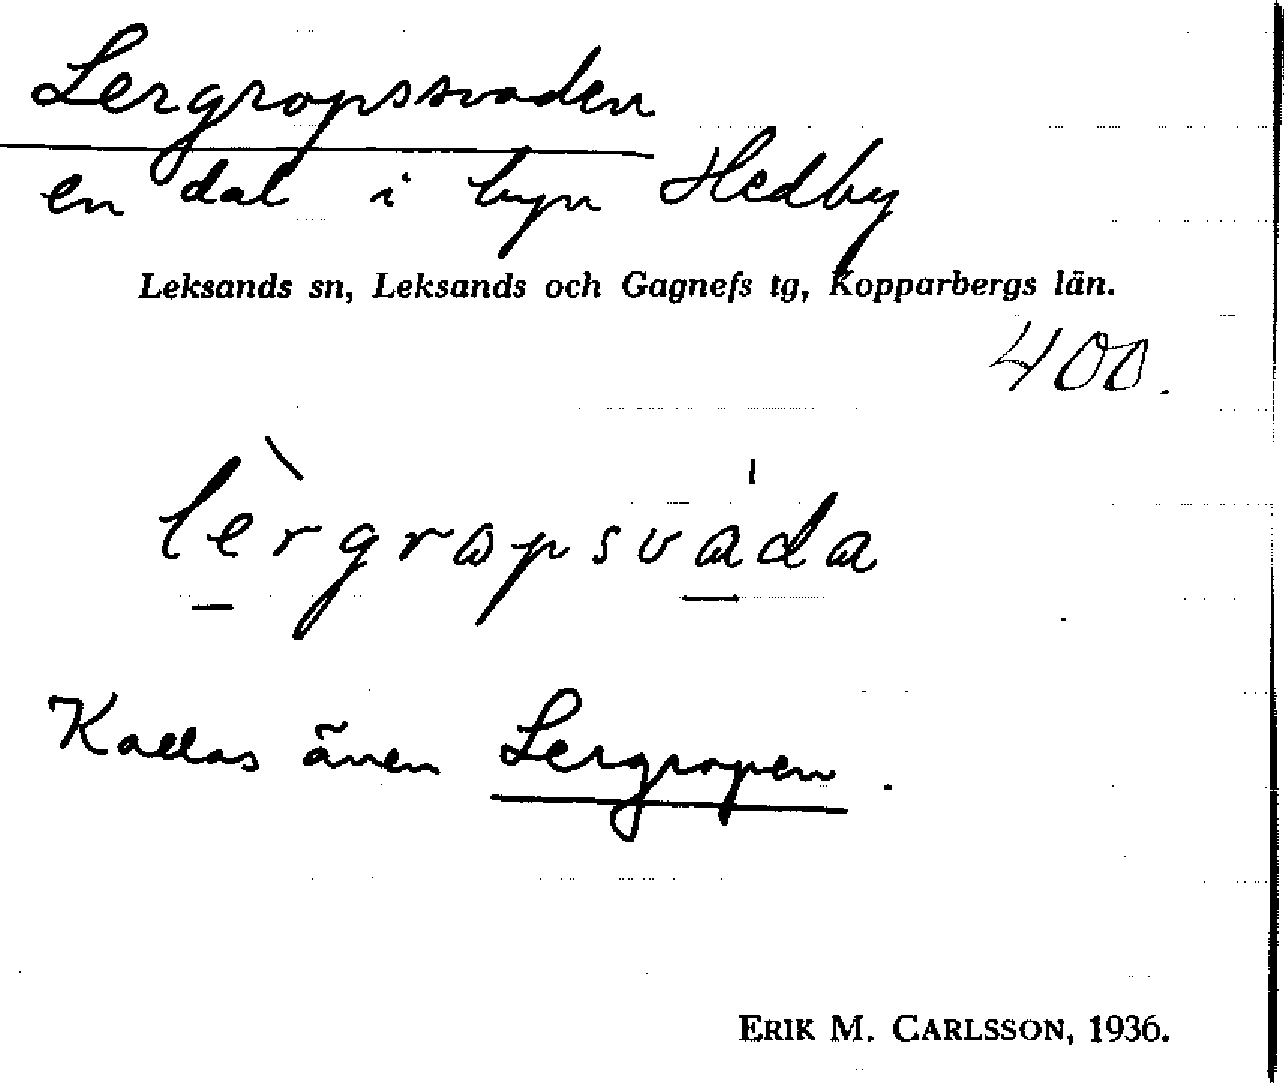 Lergropssvaden
en dal i byn Hedby
Leksands sn, Leksands och Gagnefs tg, Kopparbergs län.
400.
lèrgrɷpsvada
Kallas även Lergropen.
ERIK M. CARLSSON, 1936.